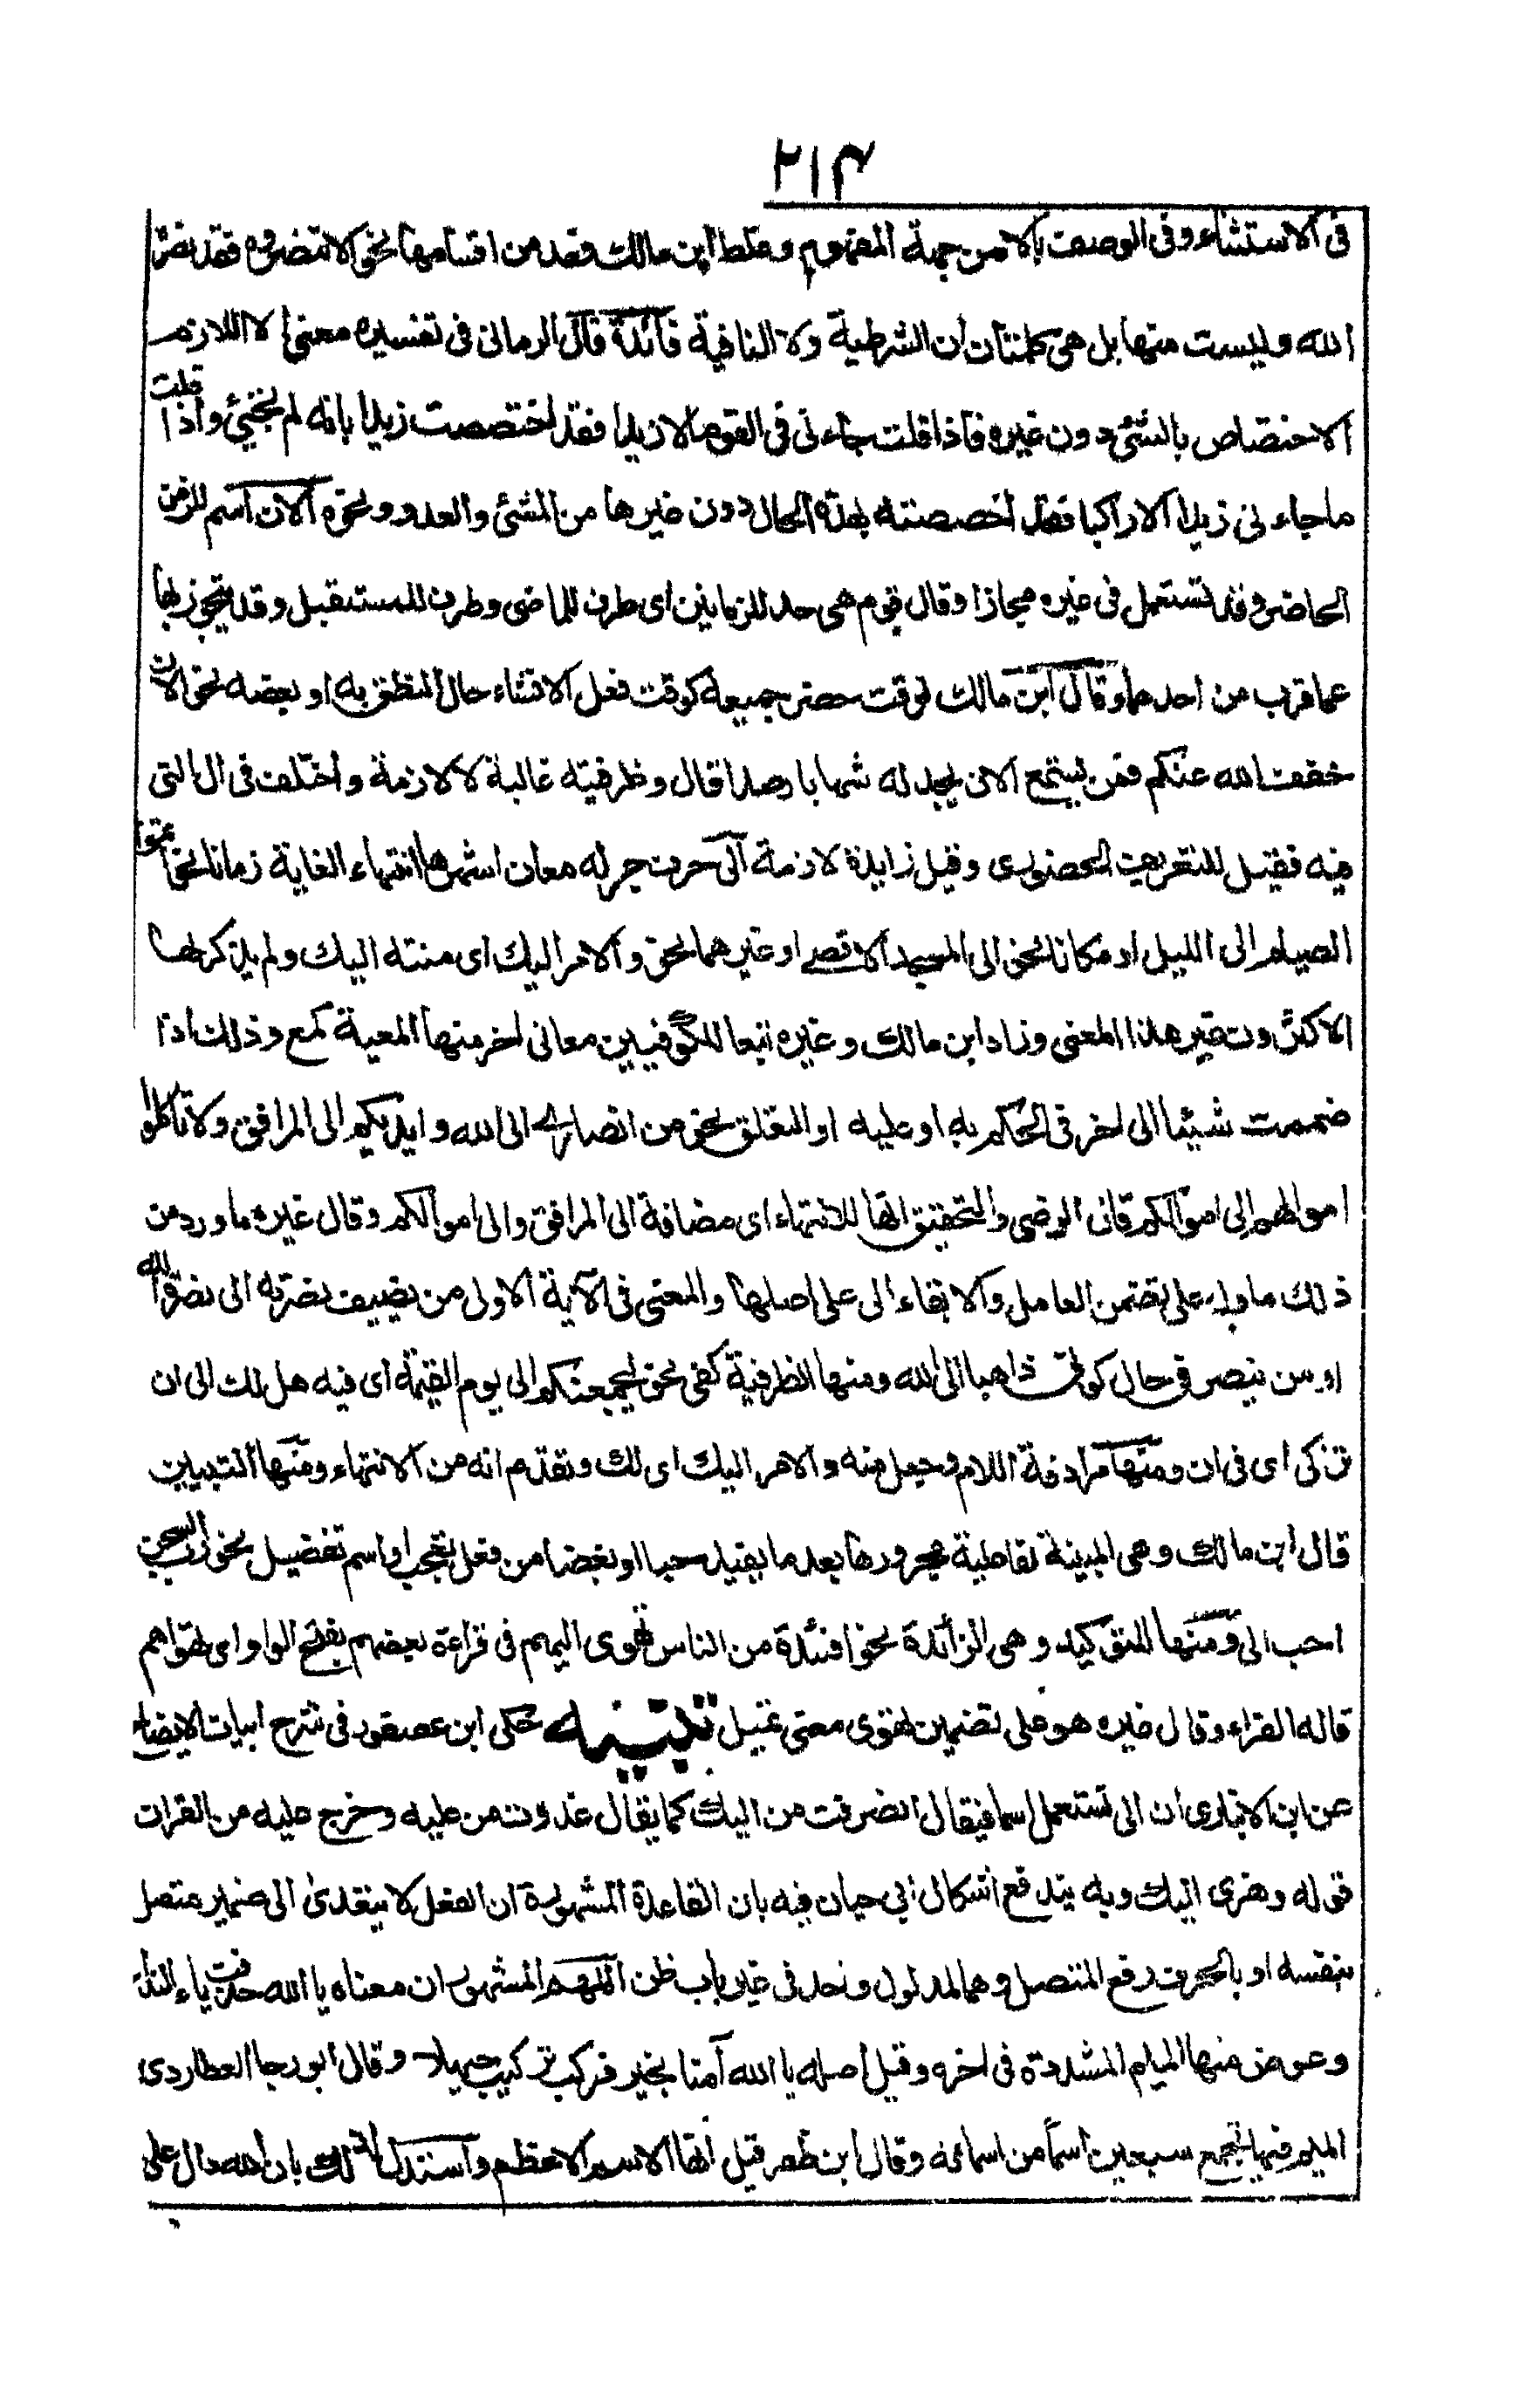 ٢١٣
فى الاستثناء وفى الوصف بالا من جهة المفهوم وغلط ابن مالك فعد من اقسامها نحو الا تنصروه فقد نصره
الله وليست منها بل هى كلمتان ان الشرطية ولا النافية فائدة قال الرمانى فى تفسيره معنى الا اللازم
الاختصاص بالشئ دون غيره فاذا قلت جاءنى القوم الا زيدا فقد اختصصت زيدا بانه لم يجئ واذا قلت
ما جاءنى زيدا الا راكبا فقد اختصصته بهذه الحال دون غيرها من المشى والعدو ونحوه الآن اسم للزمن
الحاضر وقد تستعمل فى غيره مجازا وقال قوم هى حد للزمانين اى ظرف للماضى وظرف للمستقبل وقد يتجوز بها
عما قرب من احدهما وقال ابن مالك لوقت حضر جميعه كوقت فعل الانشاء حال النطق به او بعضه نحو الآن
خفف الله عنكم فمن يستمع الان يجد له شهابا رصدا قال وظرفيته غالبة لا لازمة واختلف فى ال التى
فيه فقيل للتعريف الحضورى وقيل زايدة لازمة الى حرف جر له معان اشهرها انتهاء الغاية زمانا نحو اتموا
الصيام الى الليل او مكانا نحو الى المسجد الاقصى او غيرهما نحو والامر اليك اى منته اليك ولم يذكر لها
الاكثرون غير هذا المعنى وزاد ابن مالك وغيره تبعا للكوفيين معانى اخر منها المعية كمع وذلك اذا
ضممت شيئا الى اخر فى الحكم به او عليه او التعلق نحو من انصارى الى الله وايديكم الى المرافق ولا تاكلوا
اموالهم الى اموالكم قال الرضى والتحقيق انها للانتهاء اى مضافة الى المرافق والى اموالكم وقال غيره ما ورد من
ذلك ماول على تضمن العامل والابقاء الى على اصلها والمعنى فى الآية الاولى من يضيف نصرته الى نصرة الله
او من ينصرنى حال كونى ذاهبا الى الله ومنها الظرفية كفى نحو ليجمعنكم الى يوم القيمة اى فيه هل لك الى ان
تزكى اى فى ان ومنها مرادفة اللام وجعل منه والامر اليك اى لك وتقدم انه من الانتهاء ومنها التبيين
قال ابن مالك وهى المبينة لفاعلية مجرورها بعد ما يفيد حبا او بغضا من فعل تعجب او اسم تفضيل نحو رب السجن
احب الى ومنها للتوكيد وهى الزائدة نحو افئدة من الناس تهوى اليهم فى قراءة بعضهم بفتح الواو اى تهواهم
قاله الفراء وقال غيره هو على تضمين تهوى معنى تميل تنبيه حكى ابن عصفور فى شرح ابيات الايضاح
عن ابن الانبارى ان الى تستعمل اسما فيقال انصرفت من اليك كما يقال غدوت من عليه وخرج عليه من القران
قوله وهزى اليك وبه يندفع اشكال ابى حيان فيه بان القاعدة المشهورة ان الفعل لا يتعدى الى ضمير متصل
بنفسه او بالحرف رفع المتصل وهما لمدلول واحد فى غير باب ظن اللهم المشهور ان معناه يا الله حذفت ياء النداء
وعوض منها الميم المشددة فى اخره وقيل اصله يا الله آمنا بخير فركب تركيب حيهلا وقال ابو رجا العطاردى
الميم فيها تجمع سبعين اسما من اسمائه وقال ابن ظفر قيل انها الاسم الاعظم واستدل لذلك بان الله دال على